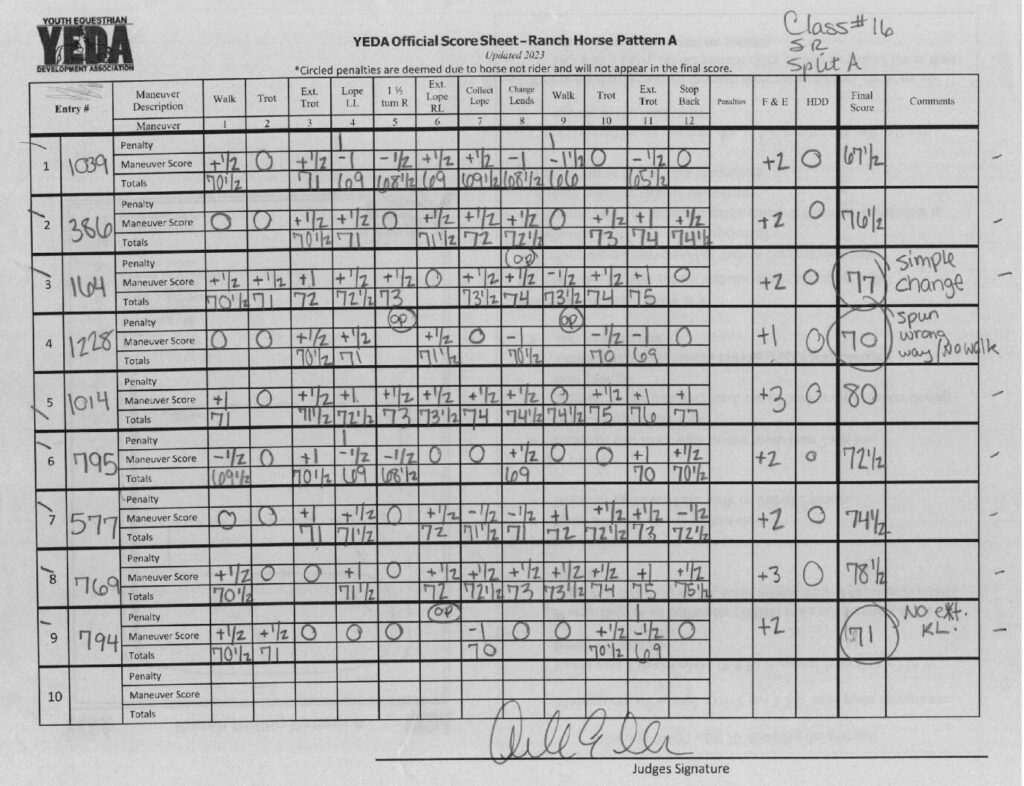 YOUTH EQUESTRIAN
YEDA
DEVELOPMENT ASSOCIATION
Class# 16
SR
Split A
YEDA Official Score Sheet – Ranch Horse Pattern A
Updated 2023
*Circled penalties are deemed due to horse not rider and will not appear in the final score.
Entry # Maneuver Description Walk Trot Ext. Trot Lope LL 1 ½ turn R Ext. Lope RL Collect Lope Change Leads Walk Trot Ext. Trot Stop Back Penalties F & E HDD Final Score Comments
Maneuver 1 2 3 4 5 6 7 8 9 10 11 12
1 1039
Penalty 1 1
Maneuver Score +1/2 0 +1/2 -1 -1/2 +1/2 +1/2 -1 -1 1/2 0 -1/2 0 +2 0 67 1/2
Totals 70 1/2 71 69 68 1/2 69 69 1/2 68 1/2 66 65 1/2
2 386
Penalty
Maneuver Score 0 0 +1/2 +1/2 0 +1/2 +1/2 +1/2 0 +1/2 +1 +1/2 +2 0 76 1/2
Totals 70 1/2 71 71 1/2 72 72 1/2 73 74 74 1/2
3 164
Penalty OP
Maneuver Score +1/2 +1/2 +1 +1/2 +1/2 0 +1/2 +1/2 -1/2 +1/2 +1 0 +2 0 77 simple change
Totals 70 1/2 71 72 72 1/2 73 73 1/2 74 73 1/2 74 75
4 1228
Penalty OP OP
Maneuver Score 0 0 +1/2 +1/2 +1/2 0 -1 -1/2 -1 0 +1 0 70 spun wrong way / No walk
Totals 70 1/2 71 71 1/2 70 1/2 70 69
5 1014
Penalty
Maneuver Score +1 0 +1/2 +1 +1/2 +1/2 +1/2 +1/2 0 +1/2 +1 +1 +3 0 80
Totals 71 71 1/2 72 1/2 73 73 1/2 74 74 1/2 74 1/2 75 76 77
6 795
Penalty 1
Maneuver Score -1/2 0 +1 -1/2 -1/2 0 0 +1/2 0 0 +1 +1/2 +2 0 72 1/2
Totals 69 1/2 70 1/2 69 68 1/2 69 70 70 1/2
7 577
Penalty
Maneuver Score 0 0 +1 +1/2 0 +1/2 -1/2 -1/2 +1 +1/2 +1/2 -1/2 +2 0 74 1/2
Totals 71 71 1/2 72 71 1/2 71 72 72 1/2 73 72 1/2
8 769
Penalty
Maneuver Score +1/2 0 0 +1 0 +1/2 +1/2 +1/2 +1/2 +1/2 +1 +1/2 +3 0 78 1/2
Totals 70 1/2 71 1/2 72 72 1/2 73 73 1/2 74 75 75 1/2
9 794
Penalty OP
Maneuver Score +1/2 +1/2 0 0 0 -1 0 0 +1/2 -1/2 0 +2 71 No ext. RL.
Totals 70 1/2 71 70 70 1/2 69
10
Penalty
Maneuver Score
Totals
Judges Signature